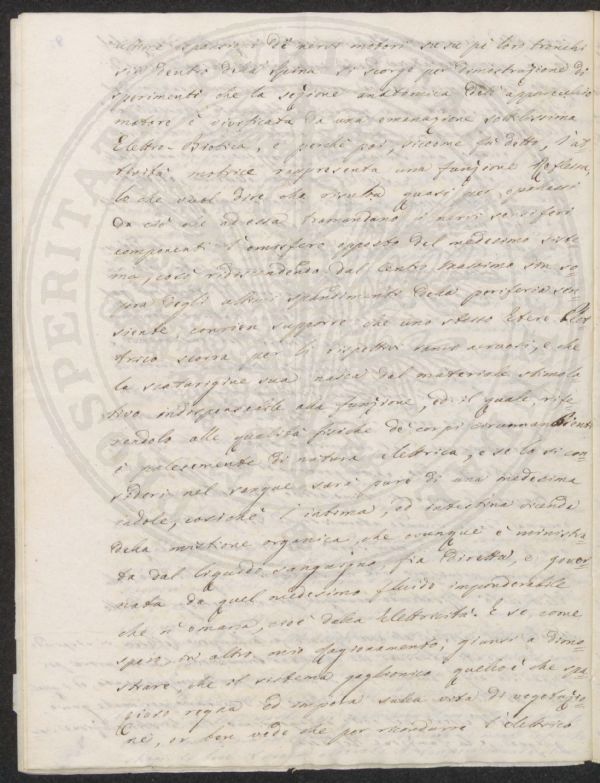 ultime espansioni de' nervi motori su su pe' loro tronchi
sin dentro della spina si scorge per dimostrazione di
sperimenti che la sezione anatomica dell'apparecchio
motore è vivificata da una emanazione sottilissima
Elettro-Biotica, e perchè poi, siccome fu detto, l'at
tività motrice rappresenta una funzione riflessa,
lo che vuol dire che risulta quasi per
da ciò che ad essa tramandano i nervi sensiferi
componenti l'emisfero opposto del medesimo siste
ma, così ridiscendendo dal centro massimo sin so
pra degli ultimi spandimenti della periferia sen
siente, convien supporre che uno stesso Etere Elet
trico scorra per li rispettivi rami nervosi, e che
la scaturigine sua nasca dal materiale stimola
tivo indispensabile alla funzione, ed il quale, rife
rendolo alle qualità fisiche de' corpi circumambienti
è palesemente di natura elettrica, e se lo si con
sideri nel sangue sarà pure di una medesima
indole, cosicchè l'intima, ed intestina vicenda
della mistione organica, che ovunque è ministra
ta dal liquido sanguigno, fia diretta, e gover
nata da quel medesimo fluido imponderabile
che n'emana, cioè della Elettricità. E se, come
sperai in altro mio ragionamento, giunsi a dimo
strare, che il sistema ganglionico quello è che
regna ed impera sulla vita di vegetazio
ne, or ben vede che per l'elettrico
PROSPERITAT